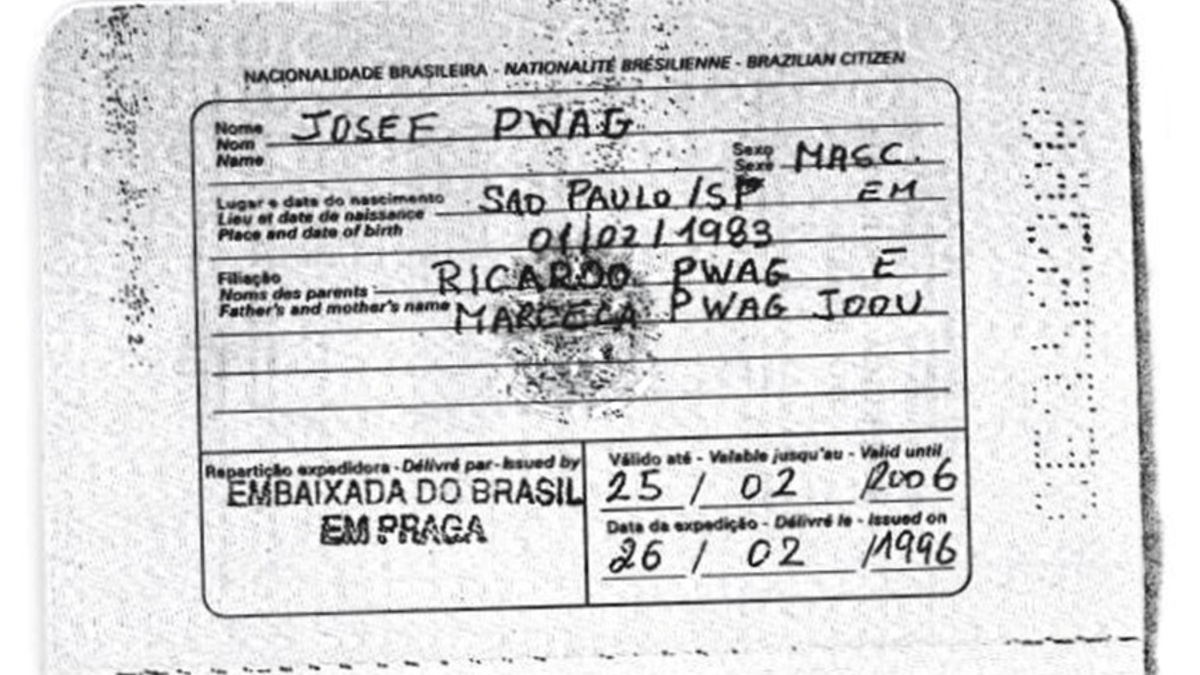 NACIONALIDADE BRASILEIRA - NATIONALITÉ BRÉSILIENNE - BRAZILIAN CITIZEN
Nome
Nom
Name
JOSEF PWAG
Sexo
Sexe
MASC.
Lugar e data do nascimento
Lieu et date de naissance
Place and date of birth
SAO PAULO/SP EM
01/02/1983
Filiação
Noms des parents
Father's and mother's name
RICARDO PWAG E
MARCELA PWAG
2
Repartição expedidora - Délivré par - Issued by
EMBAIXADA DO BRASIL
EM PRAGA
Válido até - Valable jusqu'au - Valid until
25 / 02 / 2006
Data da expedição - Délivré le - Issued on
26 / 02 / 1996